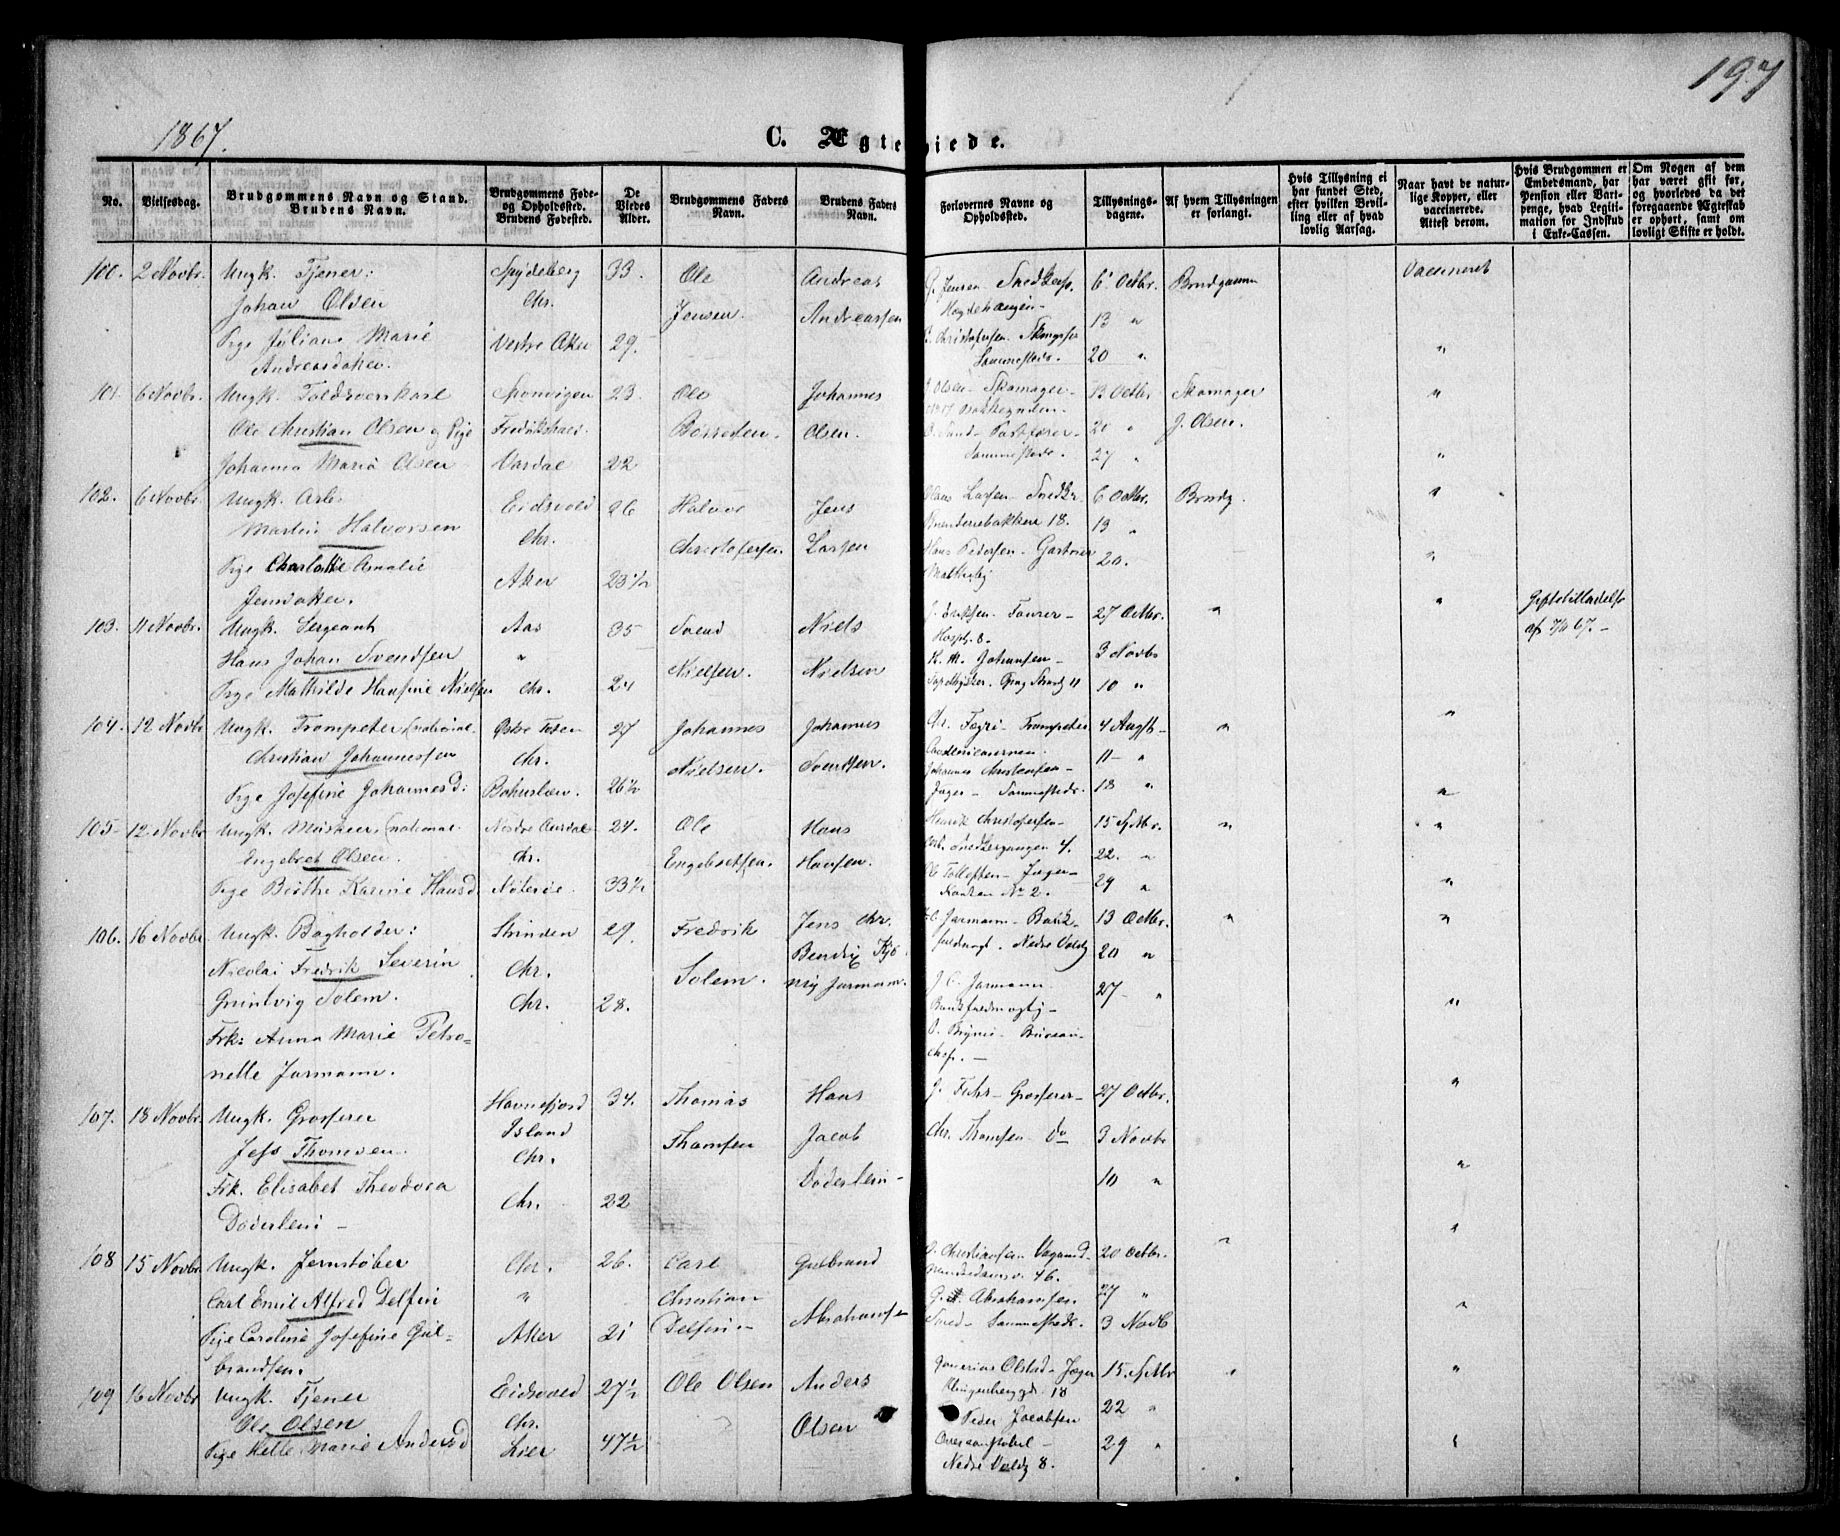 197
1867.
C. Ægteviede.
No.
Vielsesdag.
Brudgommens Navn og Stand.
Brudens Navn.
Brudgommens Føde-
og Opholdssted.
Brudens Fødested.
De
Viedes
Alder.
Brudgommens Faders
Navn.
Brudens Faders
Navn.
Forlovernes Navne og
Opholdssted.
Tillysnings-
dagene.
Af hvem Tillysningen
er forlangt.
Hvis Tillysning ei
har fundet Sted,
efter hvilken Bevil-
ling eller af hvad
lovlig Aarsag.
Naar havt de natur-
lige Kopper, eller
vaccinerede.
Attest derom.
Hvis Brudgommen er
Embedsmand, har
Pension eller Vart-
penge, hvad Legiti-
mation for Indskud
i Enke-Cassen.
Om Nogen af dem
har været gift før,
og hvorledes da det
foregaaende Ægteskab
er ophørt, samt om
lovligt Skifte er holdt.
100. 2 Novbr. Ungk. Tjener: Spydeberg 33. Ole Andreas G. Jensen Snedkersv. 6 Octbr. Brudgommen Vaccineret
Johan Olsen Chr. Jensen. Andreassen Hægdehaugen 13 "
Pige Juliane Marie Vestre Aker 29. Christofersen Sammesteds. 20 " "
Andreasdatter.
101. 6 Novbr. Ungk. Toldopsynskarl Sponvigen 23. Ole Johannes Olsen Skomager 13 Octbr. Skomager "
Ole Christian Olsen og Pige Fredrikshald. Børresen. Olsen. 20 " J. Olsen.
Johanna Maria Olsen Vardal 22 Sammesteds. 27 " "
102. 6 Novbr. Ungk. Arb. Eidsvold 26 Halvor Jens Hans Larsen Snedkr. 6 Octbr. Brudg. "
Martin Halvorsen Chr. Christofersen. Larsen 18. 13 "
Pige Charlotte Amalie Aker 23 1/2 Hans Pedersen Gartner 20. "
Jensdatter.
103. 11 Novbr. Ungk. Sergeant Aas 35 Svend Niels J. Eriksen Fourer 27 Octbr. " " Giftetilladelse
Hans Johan Svendsen " Nielsen. Nielsen Hospl. 8. K. M. Johansen 3 Novbr af 7/11 67.
Pige Mathilde Hansine Nielsen Chr. 24 10 "
104. 12 Novbr Ungk. Trompeter (national Østre Toten 27 Johannes Johannes Chr. Fegri Trompeter 4 Augst "
Christian Johannessen Chr. Nielsen. Svendsen. Johannes Christensen 11 "
Pige Josefine Johannesd: Bohuslæn. 26 1/2 Jæger Sammesteds. 18 " "
105 12 Novbr Ungk. (national Nordre Aurdal 24. Ole Hans Henrik Christofersen 15 Sptbr. " "
Engebret Olsen. Chr. Engebretsen. Hansen. Snedkergangen 4. 22. "
Pige Birthe Karine Hansd. Nøterøe. 33 1/2 Tollefsen Jæger No 2. 29 " "
106. 16 Novbr. Ungk. Bogholder: Strinden 29. Fredrik Jens Chr. Jarmann Bank- 13 Octbr. " "
Nicolai Fredrik Severin Chr. Solem. Bendix fuldmægt. Nedre Voldg 20 "
Grundtvig Solem. Chr. 28. Jarmann. J. C. Jarmann 27 " "
Frk: Anna Marie Petro- Bankfuldmægtig
nelle Jarmann.
107. 18 Novbr. Ungk. Grosserer Havnefjord 34. Thomas Hans J. Fuhr Grosserer 27 Octbr. "
Jess Thomsen Island Thomsen Jacob Chr. Thomsen do 3 Novbr
Chr.
Frk. Elisabet Theodora Chr. 22 Døderlein 10 " "
Døderlein
108 15 Novbr. Ungk. Jernstøber Chr. 26. Carl Gulbrand Christiansen 20 Octbr. " "
Carl Emil Alfred Delfin " Christian 46. 27 "
Pige Caroline Josefine Gul- Aker 21 Delfin Abrahamsen G. Abrahamsen Smed Sammesteds. 3 Novb "
brandsen.
109 16 Novbr. Ungk. Tjener Eidsvold 27 1/2 Ole Olsen Anders Olstad Jæger 15 Sptbr " "
Ole Olsen Chr. Olsen Klingenberggd. 18 Peder Jacobsen 22 "
Pige Helle Marie Andersd Lier 47 1/2 Nedre Voldg 8. 29 "